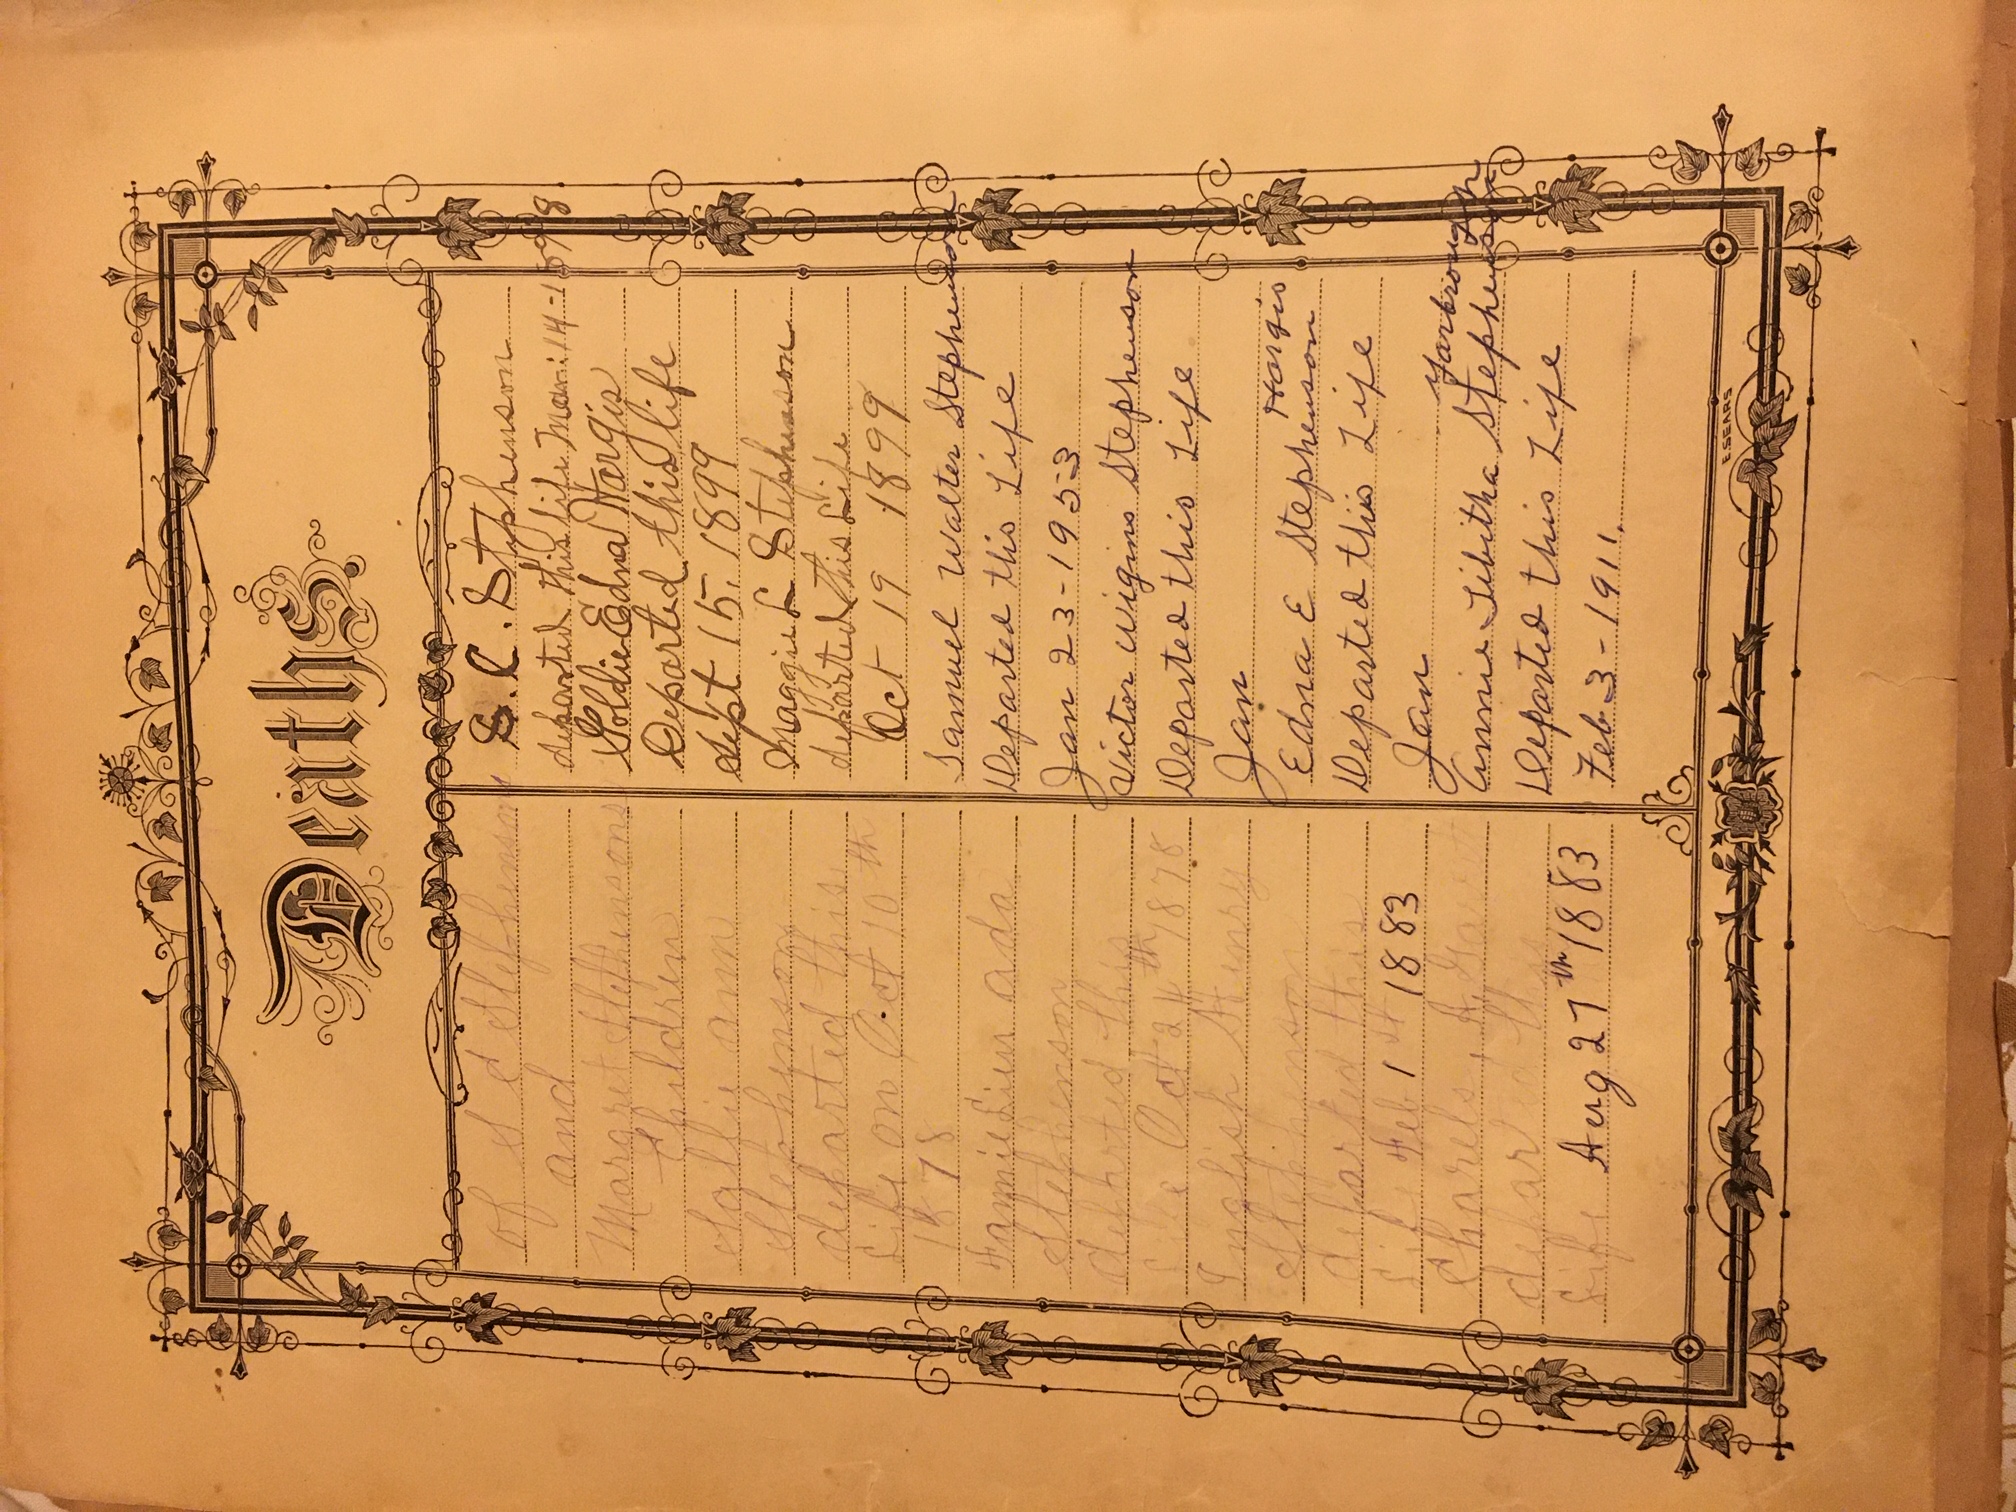 Deaths
of S C Stephenson
and
Margret Stephensons
Children
Sallie ann
Stephenson
departed this
Life on Oct 10th
1878
Fannie Lieu ada
Stephenson
departed this
Life Oct 24th 1878
English Henry
Stephenson
departed this
Life Feb 1st 1883
Charels
departed this
Life
Aug 27th 1883
S. C. Stephenson
departed this life Mar. 14-1898
Goldie Edna Hargis
Departed this life
Sept 15, 1899
Maggie L Stephenson
departed this Life
Oct 19 1899
Samuel Walter Stephenson
Departed this Life
Jan 23-1953
Victor Wigins Stephenson
Departed this Life
Jan
Hargis
Edna E Stephenson
Departed this Life
Jan
Yarbrough
Annie Tibitha Stephenson
Departed this Life
Feb 3-1911.
E. SEARS